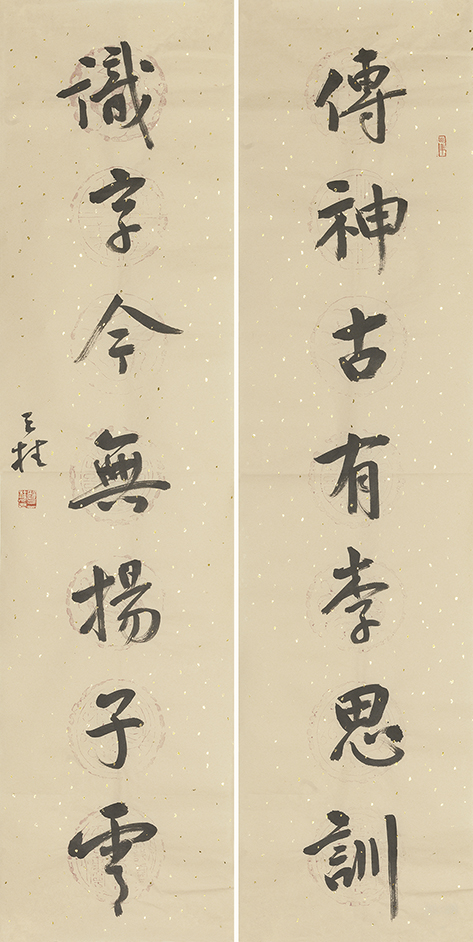 傳神古有李思訓
識字今無揚子雲